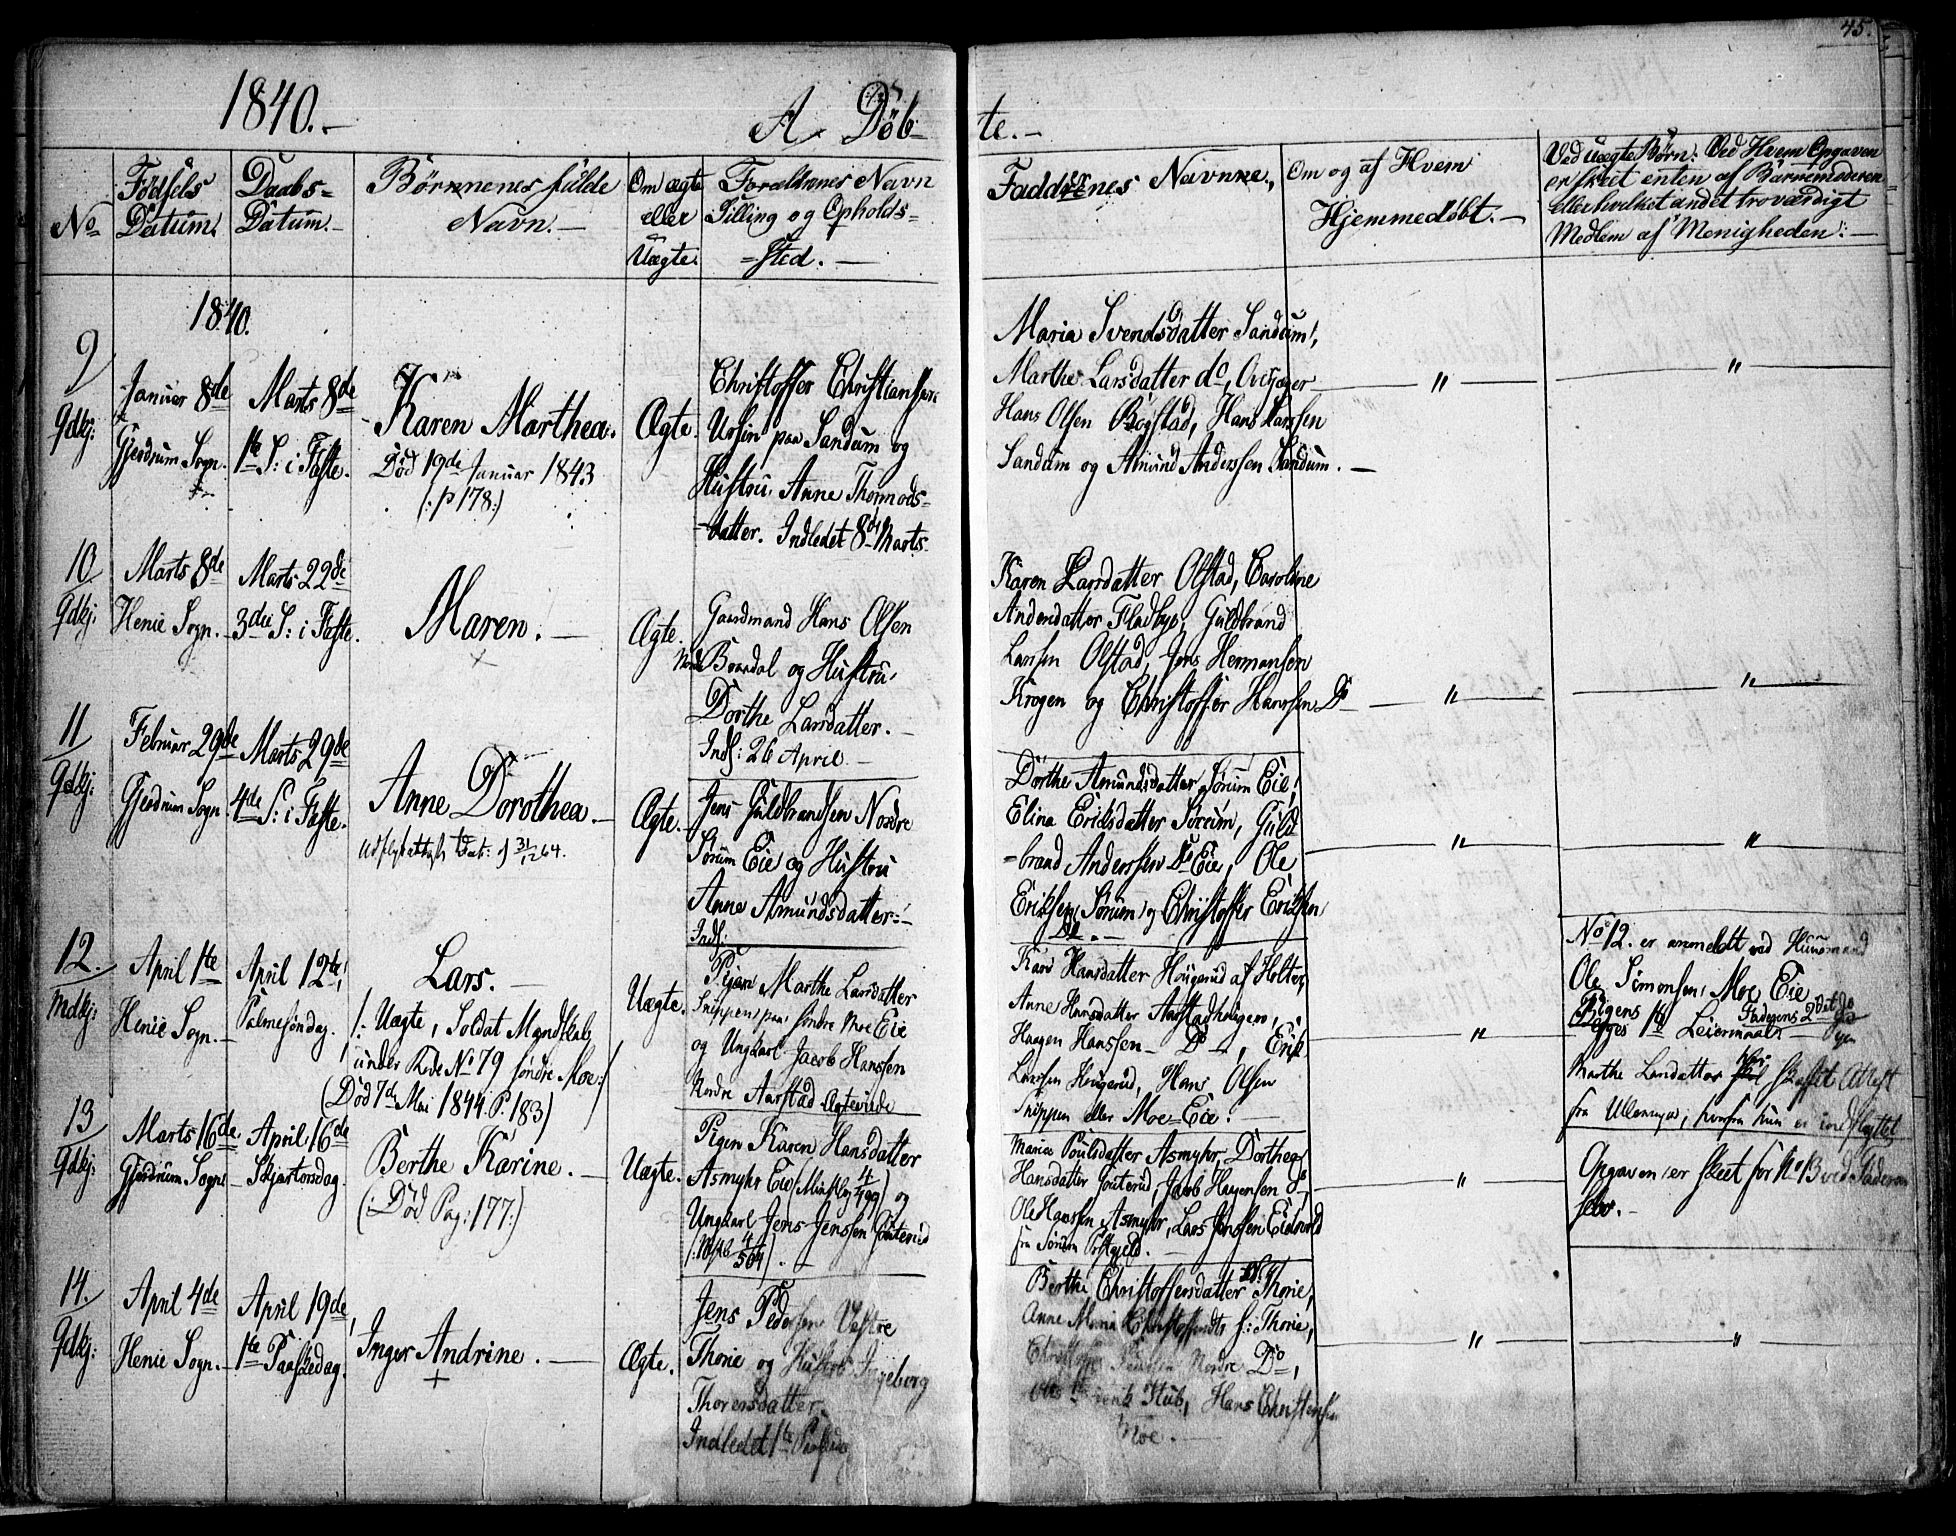 45.
1840.–
A Döb-
te.–
No
Födsels Datum.
Daabs= Datum.–
Börnenes fulde Navn.–
Om ægte eller Uægte.
Forældrenes Navn Stilling og Opholds= =sted.–
Faddrenes Navne,
Om og af Hvem Hjemmedöbt.–
Ved Uægte Börn: Ved Hvem Opgaven
er skeet enten af Barnemoderen
eller hvilket andet troværdigt
Medlem af Menigheden.–
1840.
9
gdkj:
Januar 8de
Gjerdrum Sogn.
Marts 8de
1te S: i Faste.
Karen Marthea.
Död 19de Januar 1843
(: p 178:)
Ægte.
Christoffer Christianssen
Ursin paa Sandum og
Hustru Anne Thormods=
=datter. Indledet 8de Marts.
Maria Svendsdatter Sandum,
Marthe Larsdatter do,
Hans Olsen Bogstad, Hans Larssen
Sandum og Amund Anderssen Sandum.–
"
"
10
gdkj:
Marts 8de
Henie Sogn.
Marts 22de
3die S: i Faste.
Maren.–
Ægte.
Gaardmand Hans Olsen
Nordre Braadal og Hustru
Dorthe Larsdatter.–
Indl: 26 April.–
Karen Larsdatter Olstad, Caroline
Andersdatter Fladbye, Guldbrand
Larssen Olstad, Jens Hermansen
Krogen og Christoffer Hanssen Do
"
"
11
gdkj:
Februar 29de
Gjerdrum Sogn
Marts 29de
4de S: i Faste.
Anne Dorothea.–
Udflytattest Dat: 31/12 64.
Ægte.
Jens Guldbrandsen Nordre
Sörum Eie og Hustru
Anne Amundsdatter.–
Indl:
Dorthe Amundsdatter Sörum Eie,
Elina Eriksdatter Sörum, Guld
=brand Anderssen Do Eie, Ole
Eriksen Sörum og Christoffer Eriksen
Do.–
"
"
12.
mdkj:
April 1te
Henie Sogn.–
April 12te,
Palmesöndag.
Lars.–
/: Uægte, Soldat Mandskab
under Rode No 79 söndre Moe:/
(Död 7de Mai 1844. P. 183)
Uægte.
Pigen Marthe Larsdatter
Snippen paa söndre Moe Eie
og Ungkarl Jacob Hanssen
Nordre Aarstad
Kari Hansdatter Hougerud af Holter,
Anne Hansdatter Aarstadhougen,
Haagen Hanssen – Do –, Erik
Larssen Hougerud, Hans Olsen
Snippen eller Moe=Eie.
"
No 12. er anmeldt ved Huusmand
Ole Simonsen Moe Eie
Pigens 1te Leiermaal. Faderens 2det do
Marthe Larsdatter har skaffet Attest
fra Ullensager, hvorfra hun er indflyttet
13
gdkj:
Marts 16de
Gjerdrum Sogn
April 16de
Skjærtorsdag.
Berthe Karine.–
(: Död Pag: 177:)
Uægte.
Pigen Karen Hansdatter
Asmyhr Eie 4/499) og
Ungkarl Jens Jenssen
4/504).–
Maria Poulsdatter Asmyhr, Dorthea
Hansdatter Jouterud, Jacob Haagensen Do,
Ole Hanssen Asmyhr, Lars Jenssen Eidsvold
fra Sörum Præstgjeld.–
"
Opgaven er skeet for No 13 ved Faderen
selv.–
14.
gdkj:
April 4de
Henie Sogn.–
April 19de,
1te Paaskedag.
Inger Andrine.–
Ægte.
Jens Pedersen Vestre
Thorie og Hustru Ingeborg
Thorersdatter
Indledet 1te Paaskedag
Berthe Christoffersdatter Thorie,
Anne Maria S: Thorie,
Nordre Do,
Stub, Hans Christensen
Moe.–
"
"